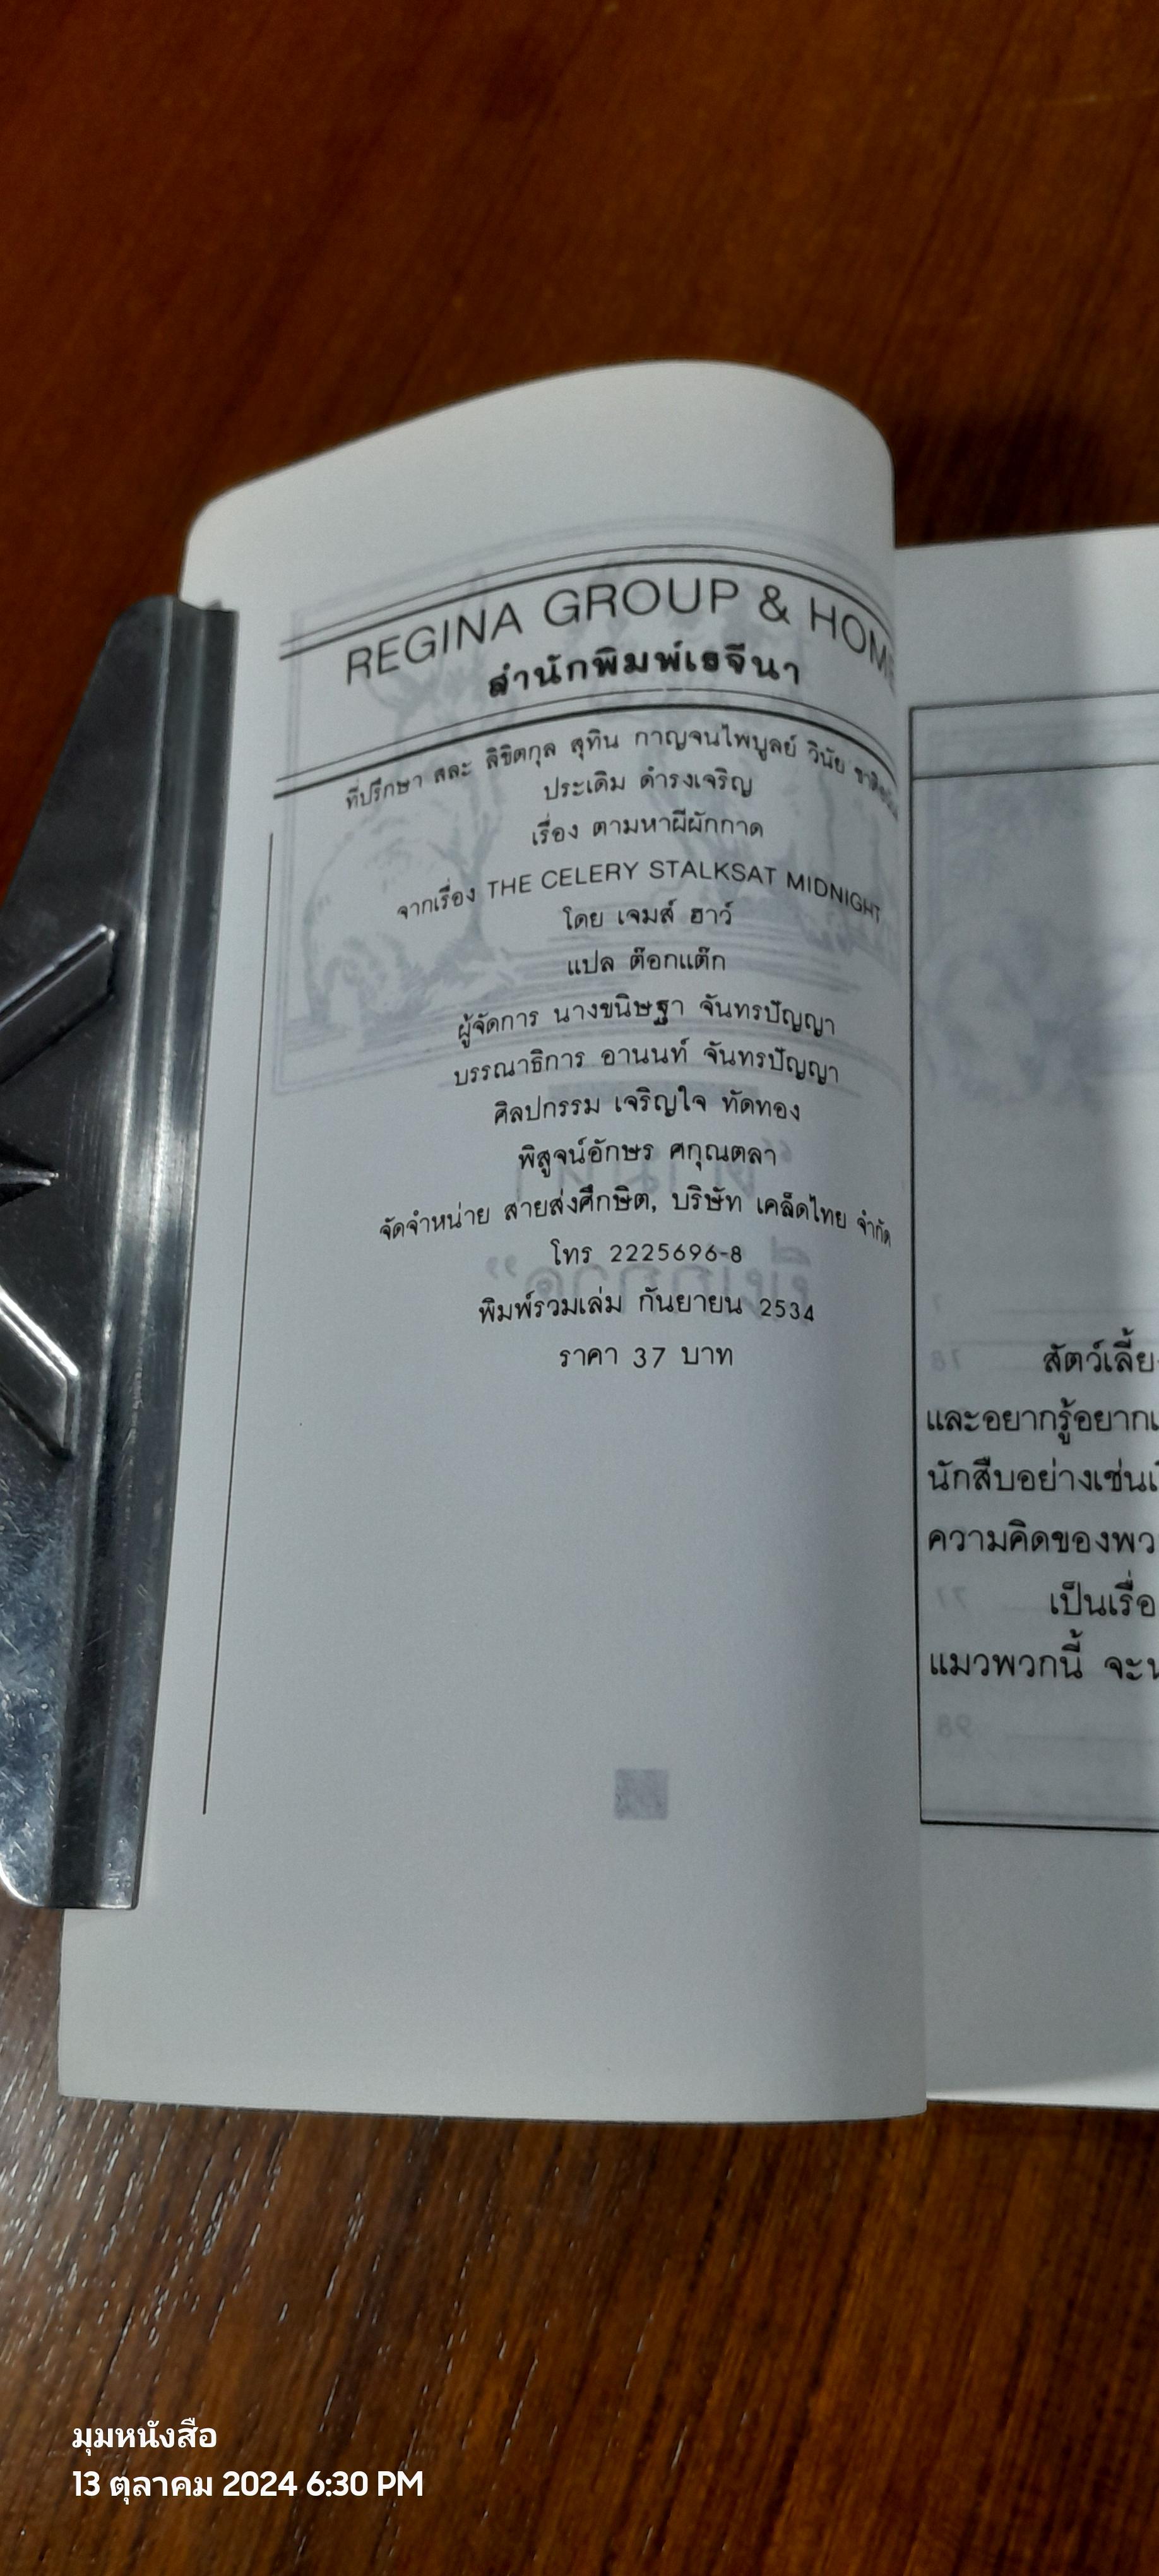 REGINA GROUP & HOME
สำนักพิมพ์เรจีนา
ที่ปรึกษา สละ ลิขิตกุล สุทิน กาญจนไพบูลย์ วินัย
ประเดิม ดำรงเจริญ
เรื่อง ตามหาผีผักกาด
จากเรื่อง THE CELERY STALKSAT MIDNIGHT
โดย เจมส์ ฮาว์
แปล ต๊อกแต๊ก
ผู้จัดการ นางขนิษฐา จันทรปัญญา
บรรณาธิการ อานนท์ จันทรปัญญา
ศิลปกรรม เจริญใจ ทัดทอง
พิสูจน์อักษร ศกุณตลา
จัดจำหน่าย สายส่งศึกษิต, บริษัท เคล็ดไทย จำกัด
โทร 2225696-8
พิมพ์รวมเล่ม กันยายน 2534
ราคา 37 บาท
สัตว์เลี้ย
และอยากรู้อยาก
นักสืบอย่างเช่น
ความคิดของพว
เป็นเรื่อ
แมวพวกนี้ จะ
มุมหนังสือ
13 ตุลาคม 2024 6:30 PM